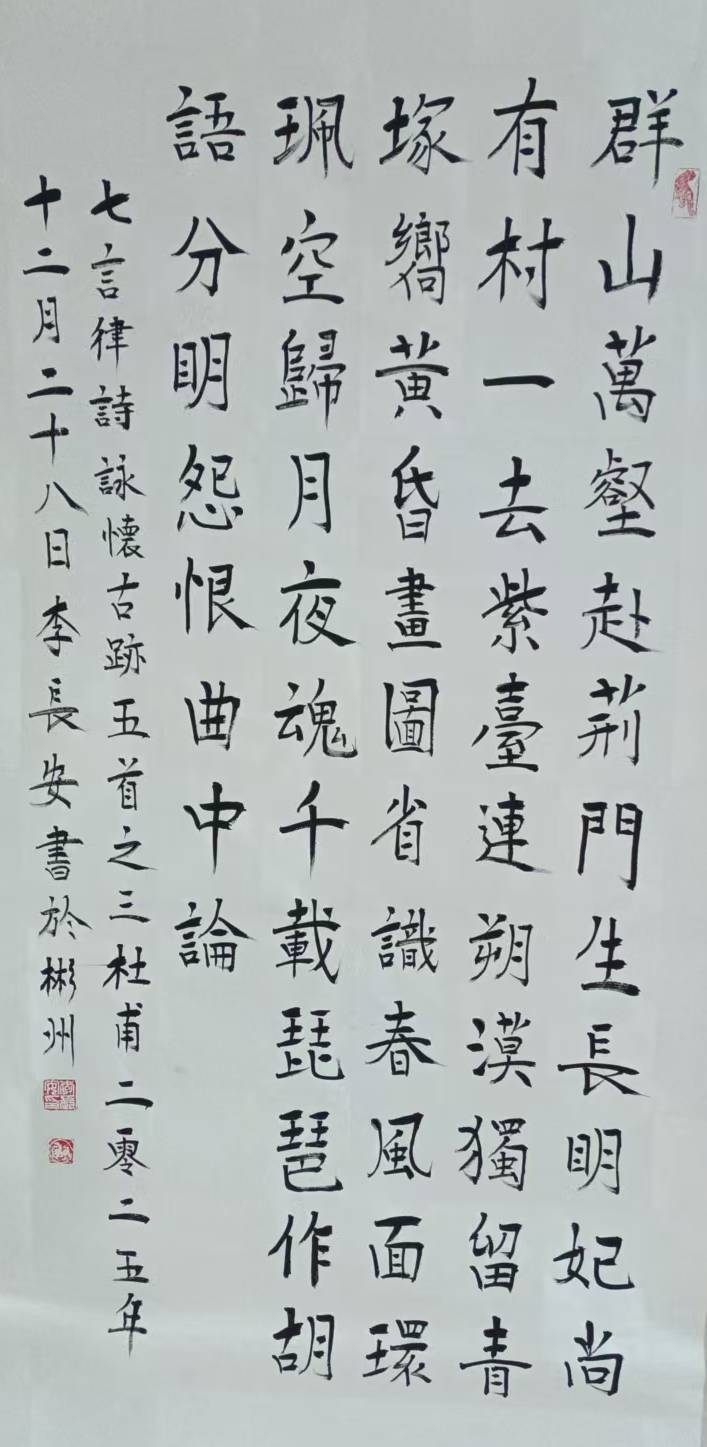 群山萬壑赴荊門生長明妃尚
有村一去紫臺連朔漠獨留青
塚嚮黃昏畫圖省識春風面環
珮空歸月夜魂千載琵琶作胡
語分明怨恨曲中論
七言律詩詠懷古跡五首之三杜甫二零二五年
十二月二十八日李長安書於彬州